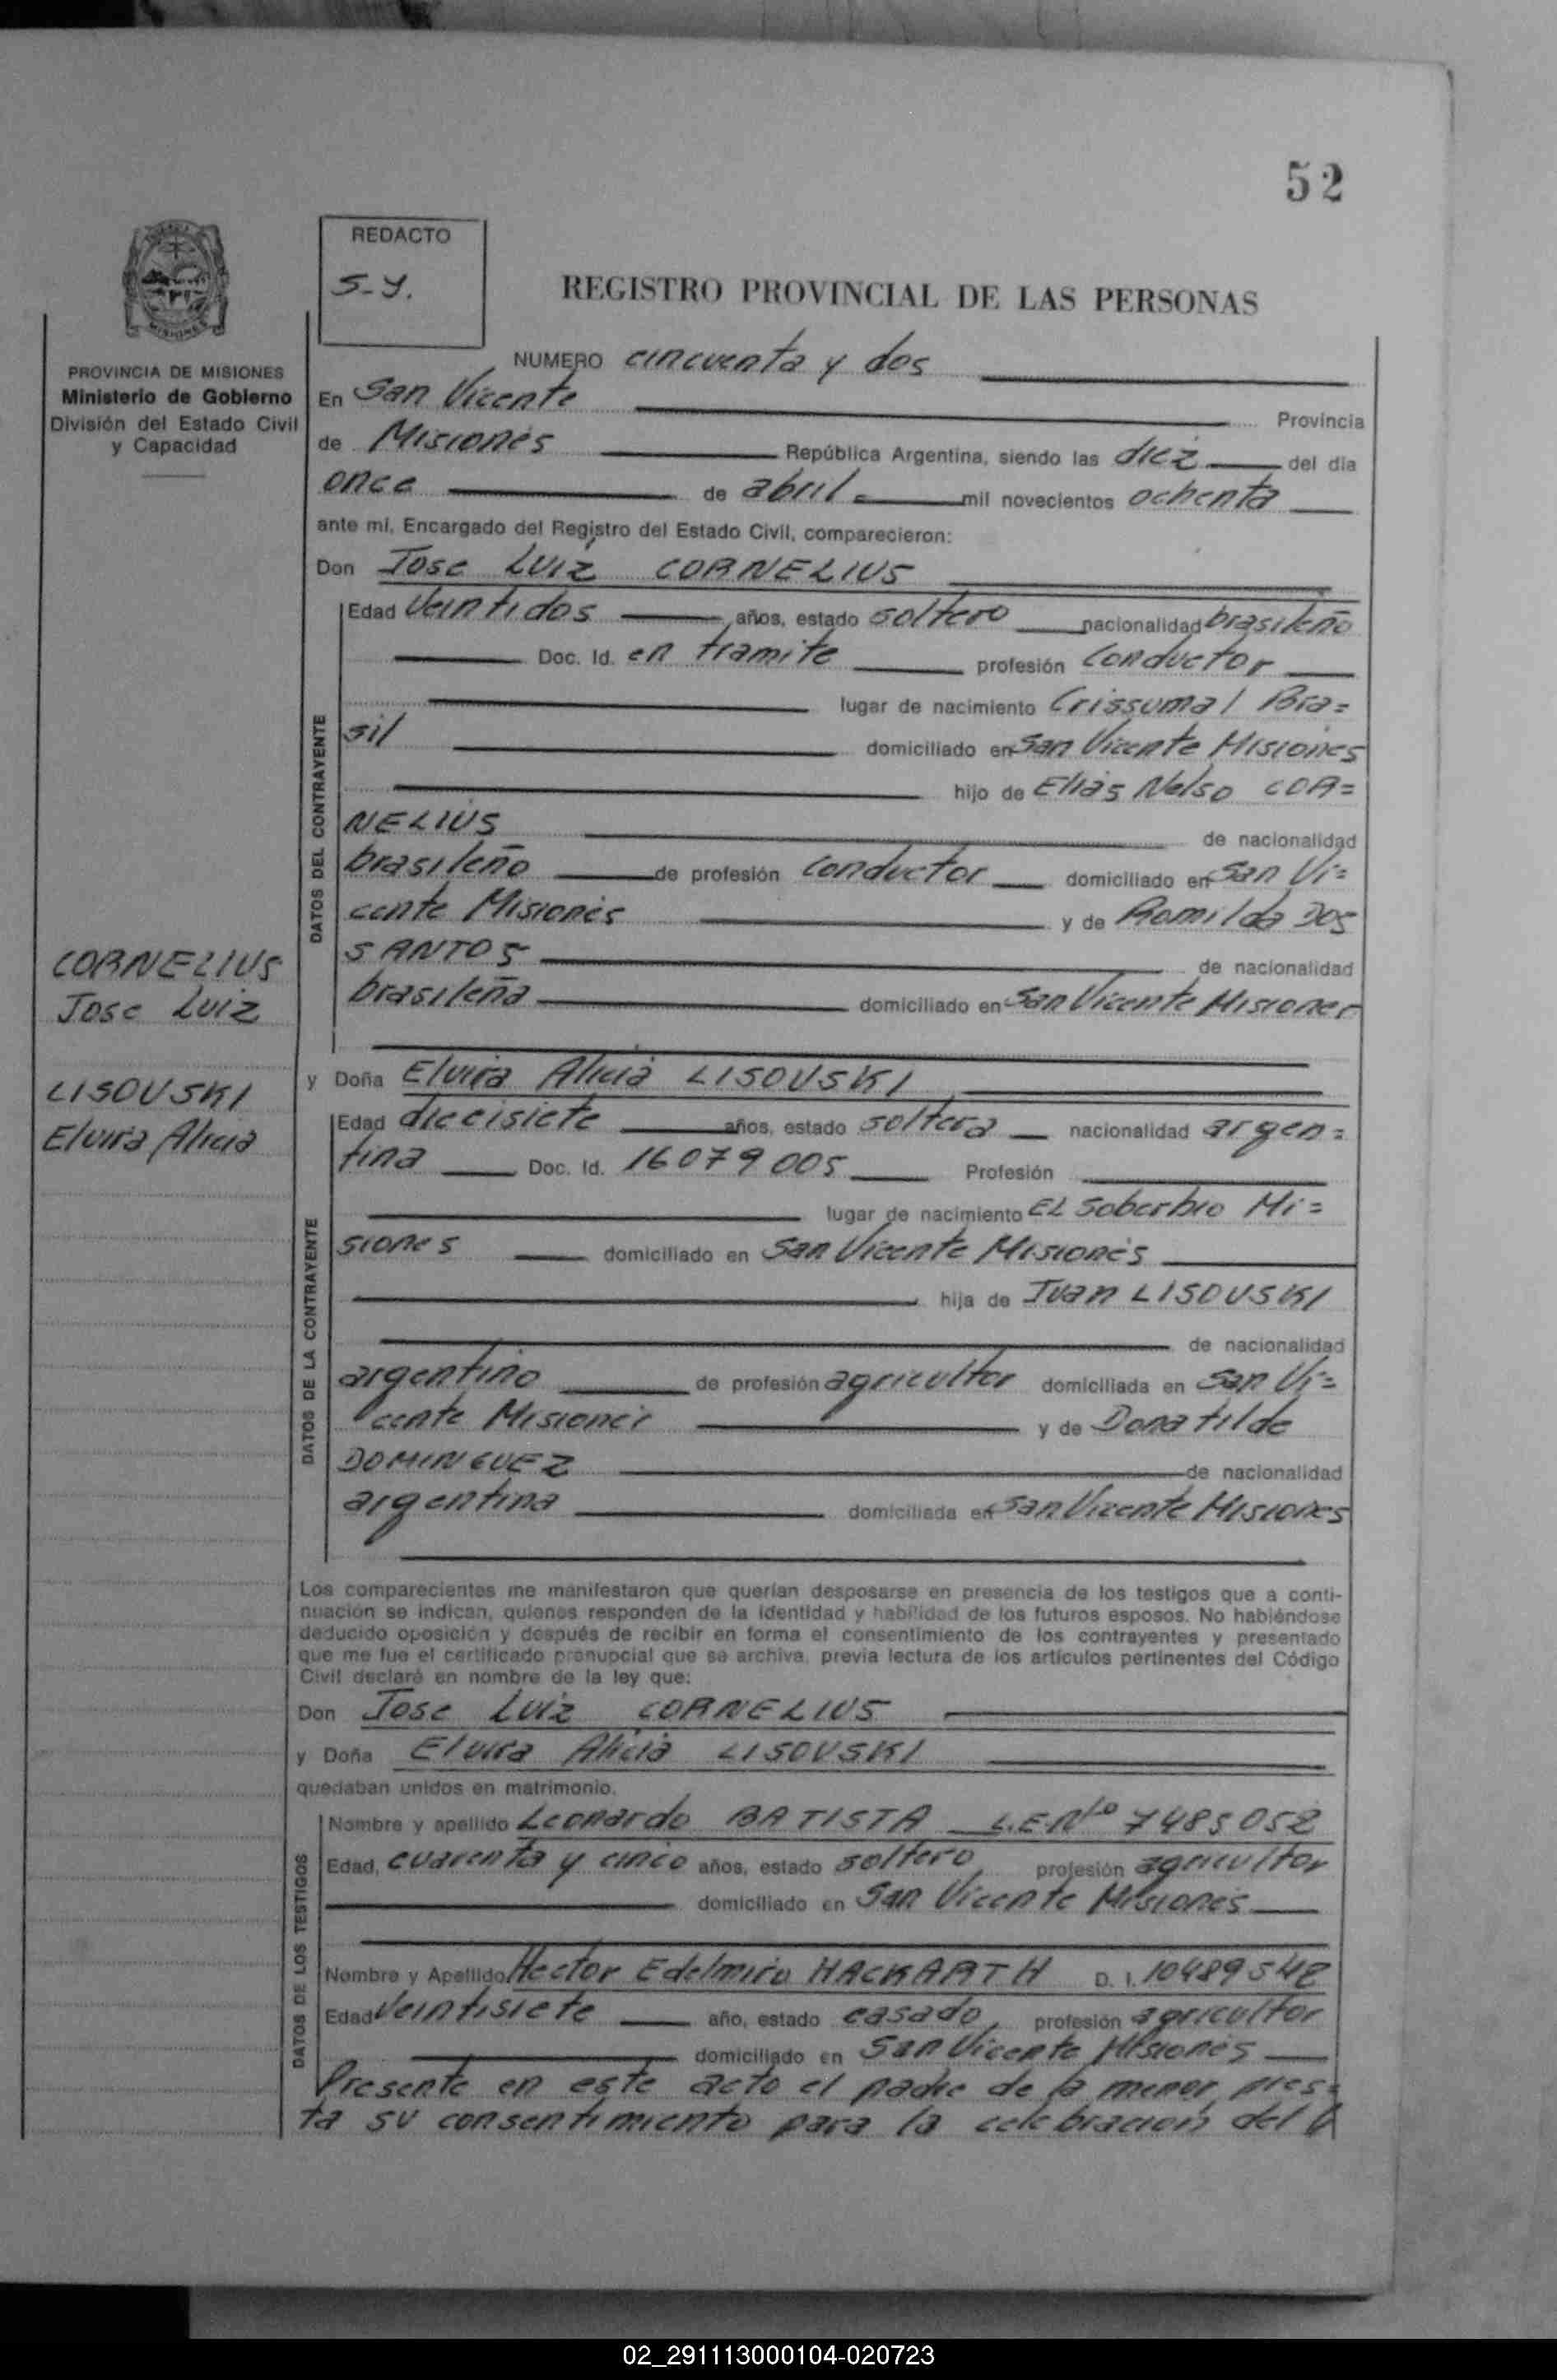 52
REDACTO
S-Y.
REGISTRO PROVINCIAL DE LAS PERSONAS
PROVINCIA DE MISIONES
Ministerio de Gobierno
División del Estado Civil
y Capacidad
NUMERO cincuenta y dos
En San Vicente Provincia
de Misiones República Argentina, siendo las diez del día
once de abril mil novecientos ochenta
ante mí, Encargado del Registro del Estado Civil, comparecieron:
Don Jose Luiz CORNELIUS
DATOS DEL CONTRAYENTE
Edad veintidos años, estado soltero nacionalidad brasileño
Doc. Id. en tramite profesión conductor
lugar de nacimiento Crissumal Bra=
sil domiciliado en San Vicente Misiones
hijo de Elias Nelso COR=
NELIUS de nacionalidad
brasileño de profesión conductor domiciliado en San Vi=
cente Misiones y de Romilda DOS
SANTOS de nacionalidad
brasileña domiciliado en San Vicente Misiones
CORNELIUS
Jose Luiz
LISOUSKI
Elvira Alicia
y Doña Elvira Alicia LISOUSKI
DATOS DE LA CONTRAYENTE
Edad diecisiete años, estado soltera nacionalidad argen=
tina Doc. Id. 16079005 Profesión
lugar de nacimiento El Soberbio Mi=
siones domiciliado en San Vicente Misiones
hija de Juan LISOUSKI
de nacionalidad
argentino de profesión agricultor domiciliada en San Vi=
cente Misiones y de Donatilde
DOMINGUEZ de nacionalidad
argentina domiciliada en San Vicente Misiones
Los comparecientes me manifestaron que querían desposarse en presencia de los testigos que a conti-
nuación se indican, quienes responden de la identidad y habilidad de los futuros esposos. No habiéndose
deducido oposición y después de recibir en forma el consentimiento de los contrayentes y presentado
que me fue el certificado prenupcial que se archiva, previa lectura de los artículos pertinentes del Código
Civil declaré en nombre de la ley que:
Don Jose Luiz CORNELIUS
y Doña Elvira Alicia LISOUSKI
quedaban unidos en matrimonio.
DATOS DE LOS TESTIGOS
Nombre y apellido Leonardo BATISTA L.E.Nº 7485052
Edad, cuarenta y cinco años, estado soltero profesión agricultor
domiciliado en San Vicente Misiones
Nombre y Apellido Hector Edelmiro HACKARTH D. I. 10489542
Edad veintisiete año, estado casado, profesión agricultor
domiciliado en San Vicente Misiones
Presente en este acto el padre de la menor pres=
ta su consentimiento para la celebracion del
02_291113000104-020723